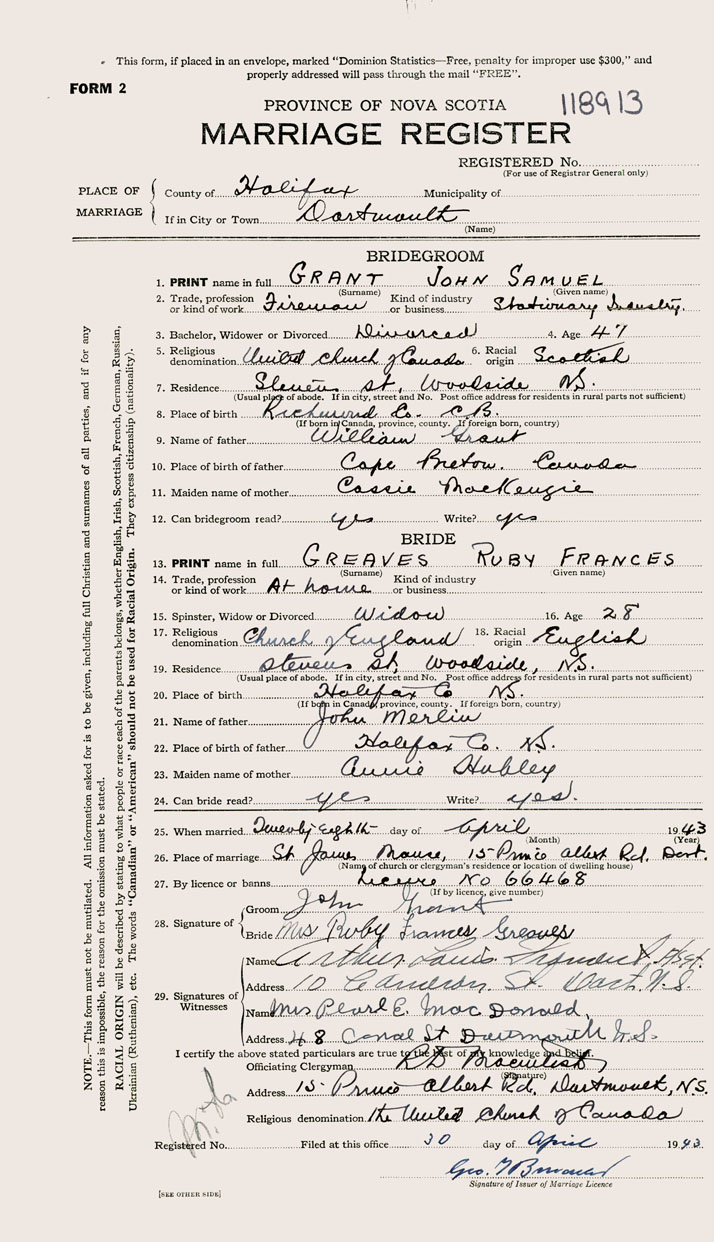 This form, if placed in an envelope, marked "Dominion Statistics—Free, penalty for improper use $300," and
properly addressed will pass through the mail "FREE".
FORM 2
PROVINCE OF NOVA SCOTIA
118913
MARRIAGE REGISTER
REGISTERED No.
(For use of Registrar General only)
PLACE OF MARRIAGE
County of Halifax Municipality of
If in City or Town Dartmouth
(Name)
BRIDEGROOM
1. PRINT name in full GRANT JOHN SAMUEL
(Surname) (Given name)
2. Trade, profession or kind of work Fireman Kind of industry or business Stationary Industry.
3. Bachelor, Widower or Divorced Divorced 4. Age 47
5. Religious denomination United church of Canada 6. Racial origin Scottish
7. Residence Stevens st, Woodside NS.
(Usual place of abode. If in city, street and No. Post office address for residents in rural parts not sufficient)
8. Place of birth Richmond Co. C B.
(If born in Canada, province, county. If foreign born, country)
9. Name of father William Grant
10. Place of birth of father Cape Breton. Canada
11. Maiden name of mother Cassie MacKenzie
12. Can bridegroom read? yes Write? yes
BRIDE
13. PRINT name in full GREAVES RUBY FRANCES
(Surname) Given name)
14. Trade, profession or kind of work At home Kind of industry or business
15. Spinster, Widow or Divorced Widow 16. Age 28
17. Religious denomination Church of England 18. Racial origin English
19. Residence Stevens st, Woodside, NS.
(Usual place of abode. If in city, street and No. Post office address for residents in rural parts not sufficient)
20. Place of birth Halifax Co NS.
(If born in Canada, province, county. If foreign born, country)
21. Name of father John Merlin
22. Place of birth of father Halifax Co. N.S.
23. Maiden name of mother Annie Hubley
24. Can bride read? yes Write? yes.
25. When married Twenty Eighth day of April 1943
(Month) (Year)
26. Place of marriage St James Manse, 15 Prince Albert Rd. Dart.
(Name of church or clergyman's residence or location of dwelling house)
27. By licence or banns Licence No 66468
(If by licence, give number)
28. Signature of
Groom John Grant
Bride Mrs Ruby Frances Greaves
29. Signatures of Witnesses
Name Arthur Louis
Address 10 Cameron St. Dart. N.S.
Name Mrs Pearl E. MacDonald,
Address 48 Canal St Dartmouth N.S.
I certify the above stated particulars are true to the best of my knowledge and belief.
Officiating Clergyman
(Signature)
Address 15 Prince Albert Rd, Dartmouth, N.S.
Religious denomination The United Church of Canada
Registered No. Filed at this office 30 day of April 1943
Geo.
Signature of Issuer of Marriage Licence
[SEE OTHER SIDE]
NOTE.—This form must not be mutilated. All information asked for is to be given, including full Christian and surnames of all parties, and if for any
reason this is impossible, the reason for the omission must be stated.
RACIAL ORIGIN will be described by stating to what people or race each of the parents belongs, whether English, Irish, Scottish, French, German, Russian,
Ukrainian (Ruthenian), etc. The words "Canadian" or "American" should not be used for Racial Origin. They express citizenship (nationality).